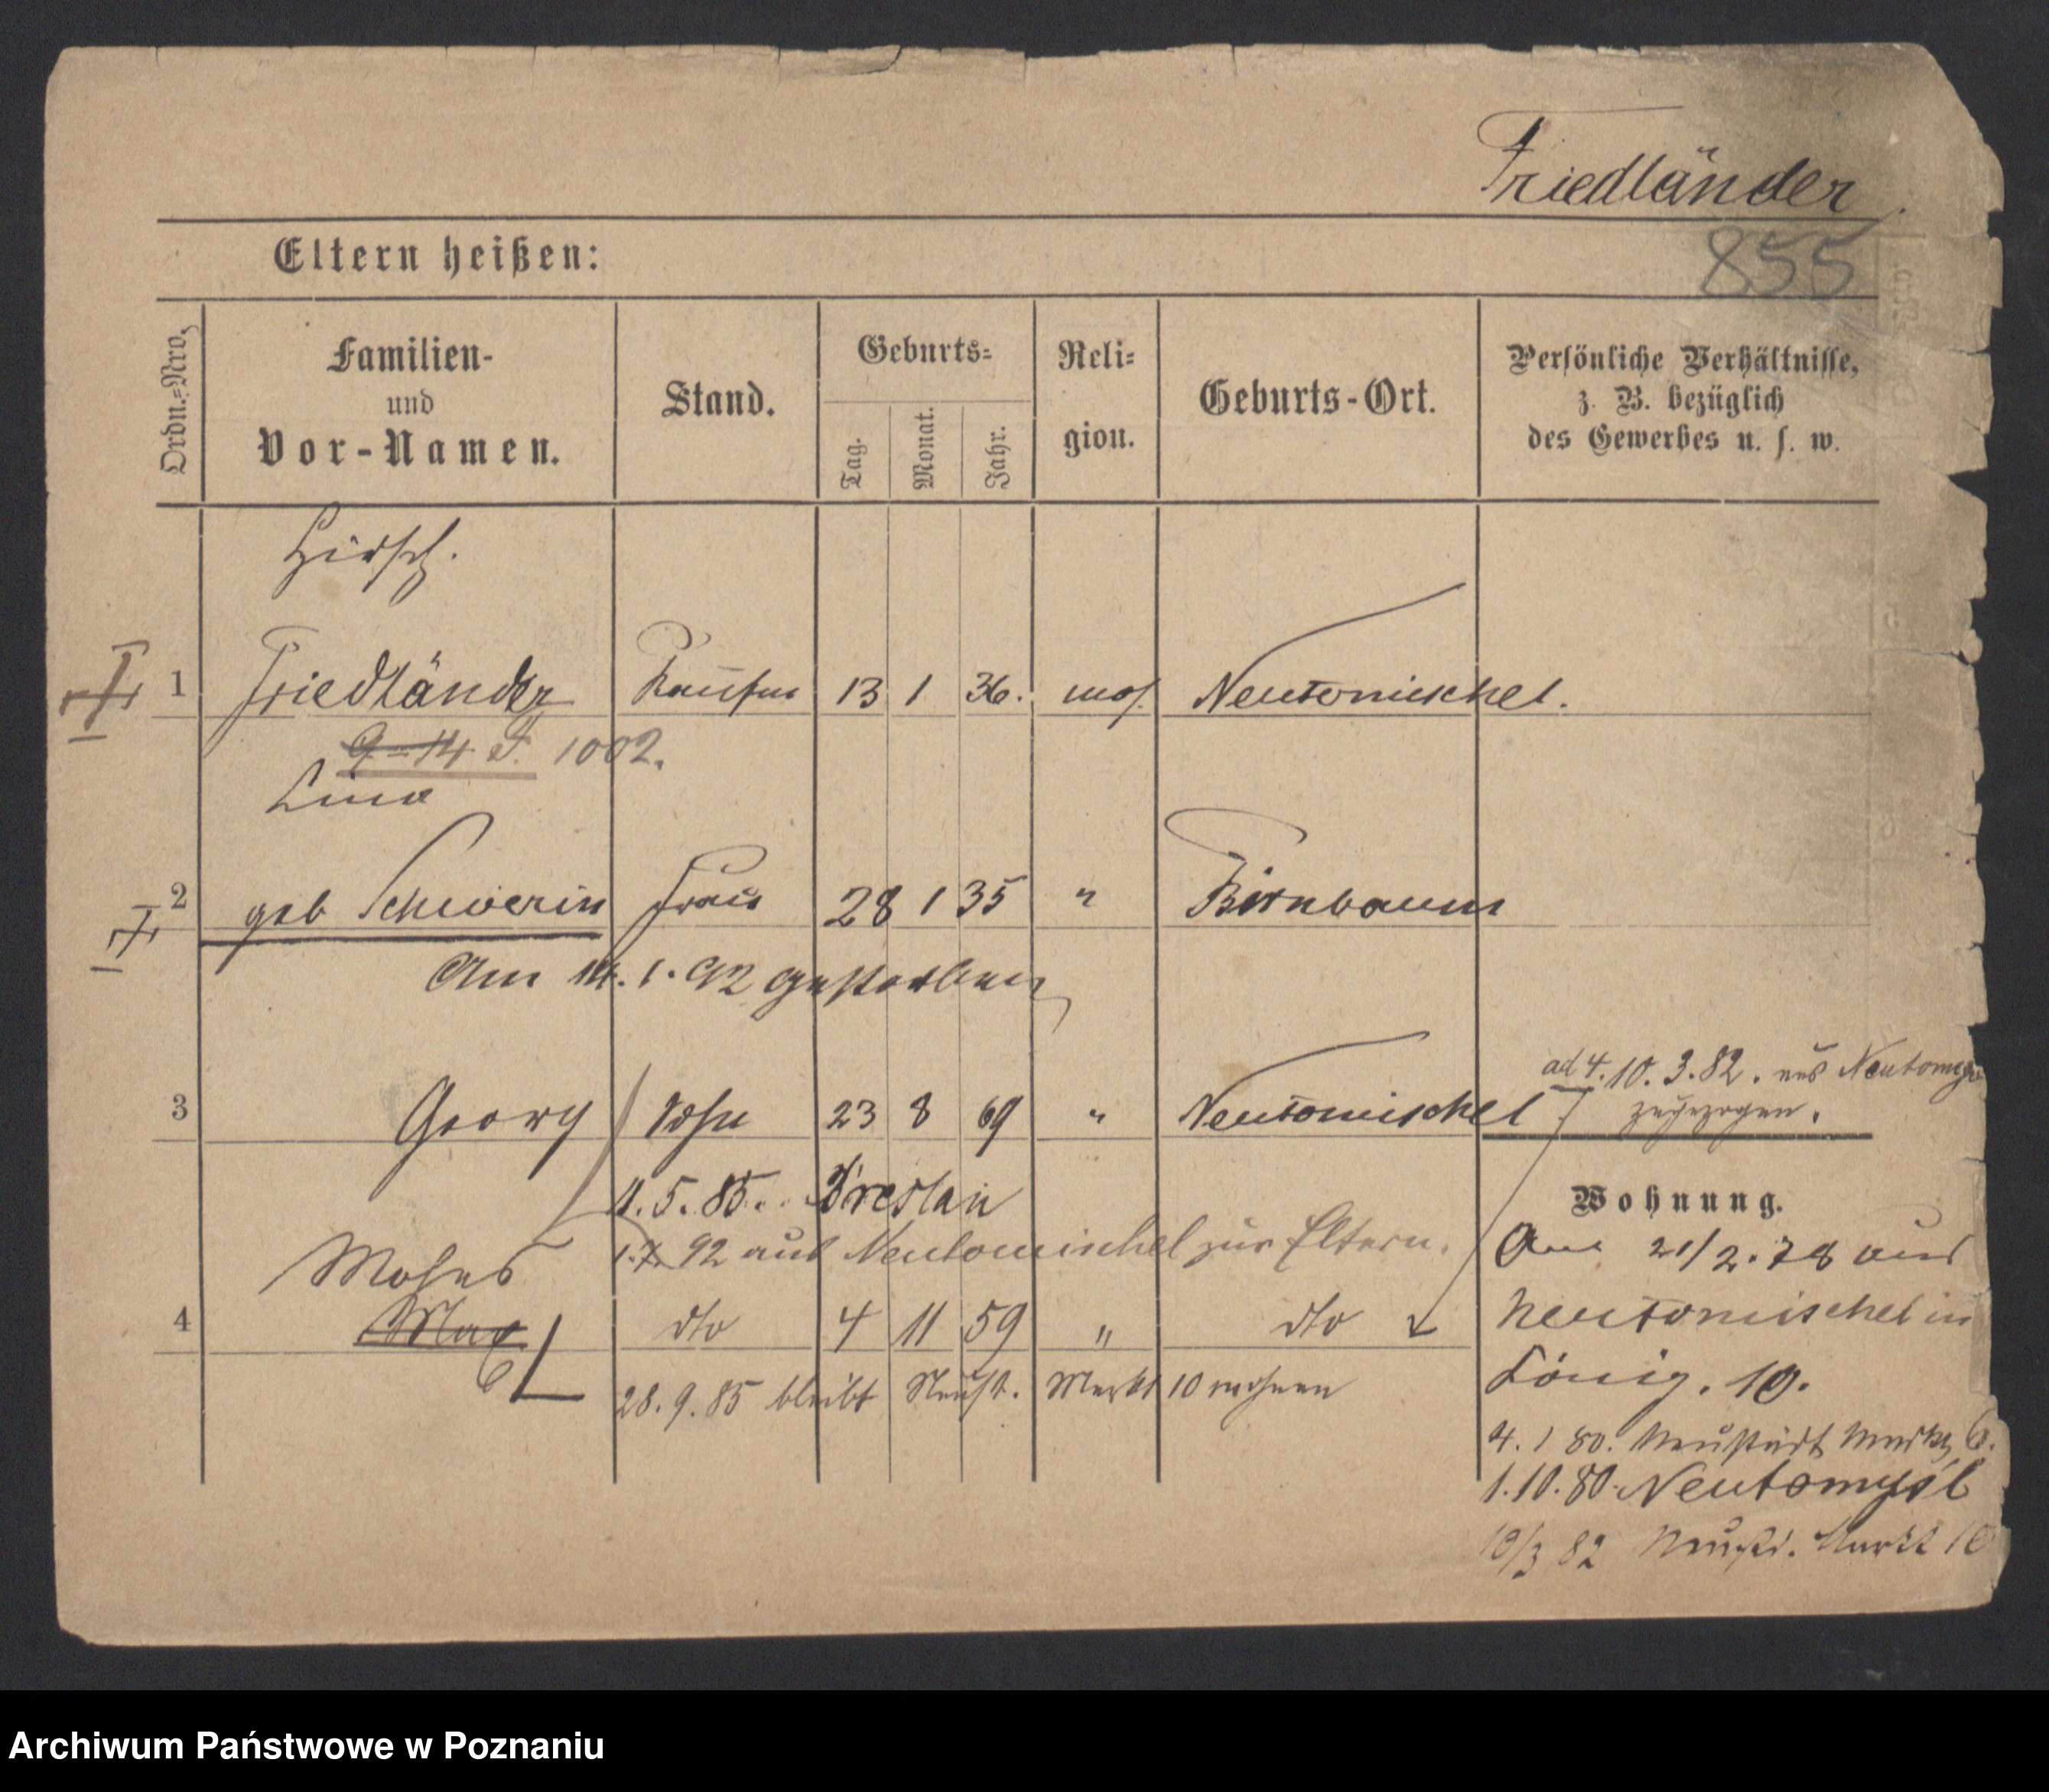 Friedländer
855
Eltern heißen:
Ordn.-Nro.
Familien-
und
Vor-Namen.
Stand.
Geburts-
Tag.
Monat.
Jahr.
Reli-
gion.
Geburts-Ort.
Persönliche Verhältnisse,
z. B. bezüglich
des Gewerbes u. s. w.
Hirsch.
1 Friedländer Kaufm 13 1 36. mos. Neutomischel.
9=14 F. 1002.
Lina
2 geb Schwerin Frau 28 1 35 " Birnbaum
Am 14. 1. 92 gestorben
ad 4. 10. 3. 82. aus Neutomysl
zugezogen.
3 Georg Sohn 23 8 69 " Neutomischel
11. 5. 85. Breslau
1. 7. 92 aus Neutomischel zur Eltern.
Moses
4 Max dto 4 11 59 " dto
28. 9. 85 bleibt Neust. Markt 10 wohnen
Wohnung.
Am 21/2. 78 aus
Neutomischel in
König. 10.
4. 1 80. Neustädt Markt 6.
1. 10. 80. Neutomysl
10/3 82 Neust. Markt 10
Archiwum Państwowe w Poznaniu